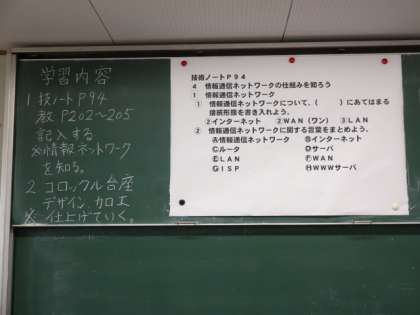 学習内容
1 技ノートP94
教P202〜205
記入する
※情報ネットワーク
を知る。
2 コロックル台座
デザイン、加工
※ 仕上げていく。
技術ノートP94
4 情報通信ネットワークの仕組みを知ろう
1 情報通信ネットワーク
① 情報通信ネットワークについて、( )にあてはまる
接続形態を書き入れよう。
②インターネット ②WAN(ワン) ③LAN
② 情報通信ネットワークに関する言葉をまとめよう。
Ⓐ情報通信ネットワーク Ⓑインターネット
Ⓒルータ Ⓓサーバ
ⒺLAN ⒻWAN
ⒼISP ⒽWWWサーバ